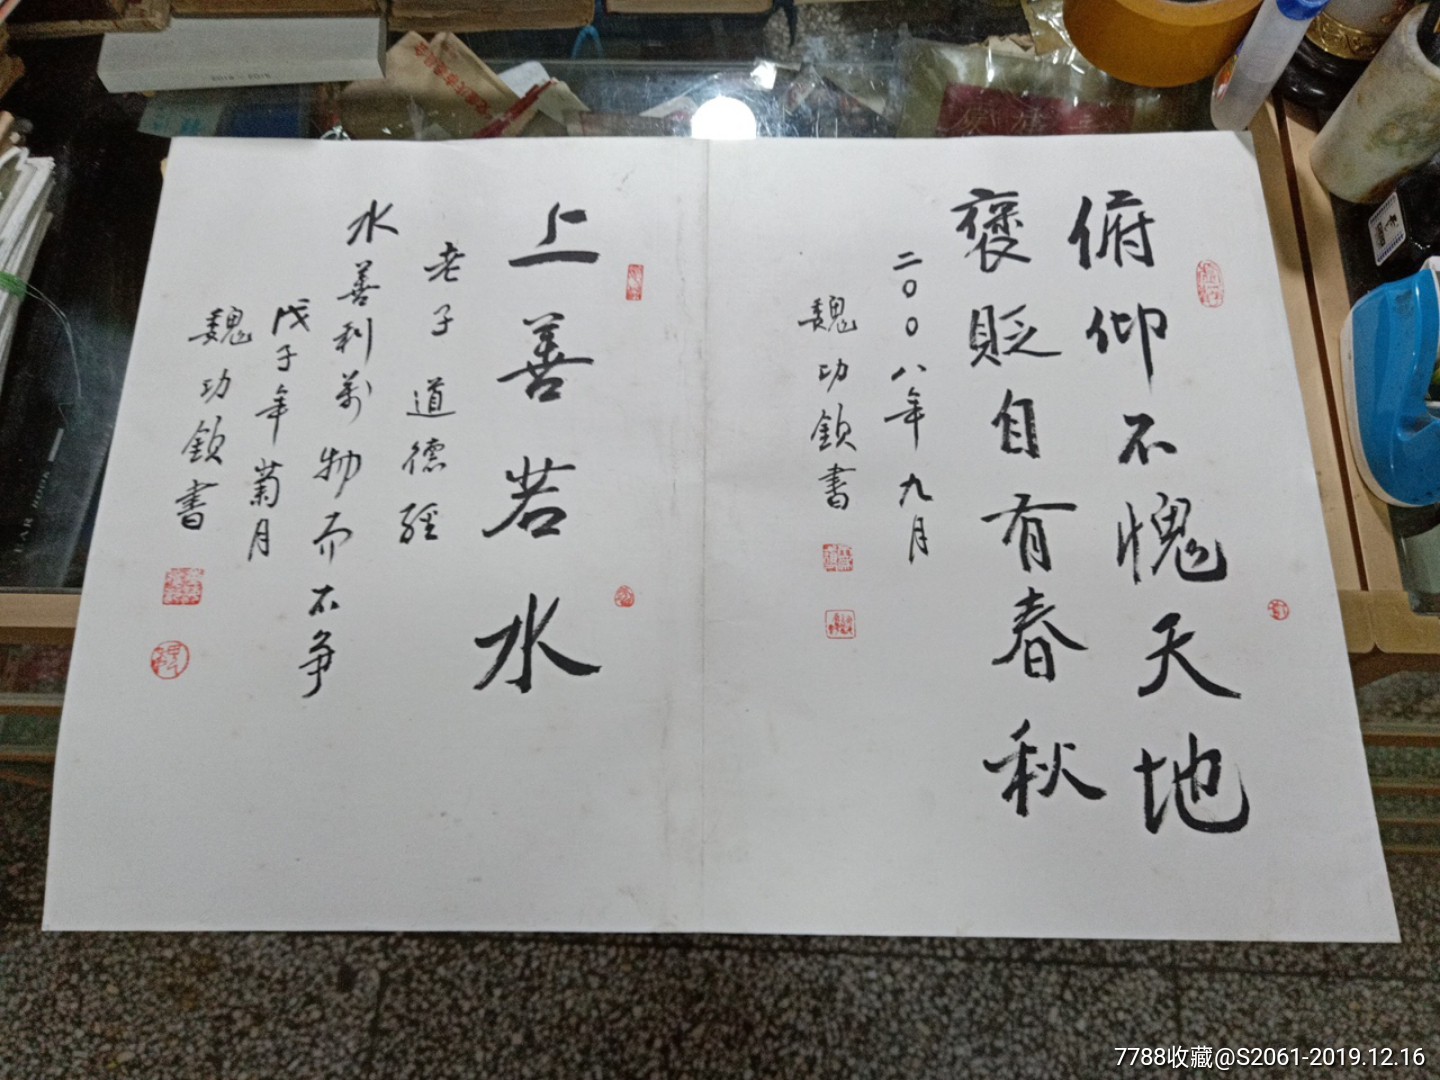 俯仰不愧天地
褒貶自有春秋
二〇〇八年九月
魏功钦書
上善若水
老子道德經
水善利萬物而不争
戊子年菊月
魏功钦書
2014 - 2015
YEAR BOOK
7788收藏@S2061-2019.12.16